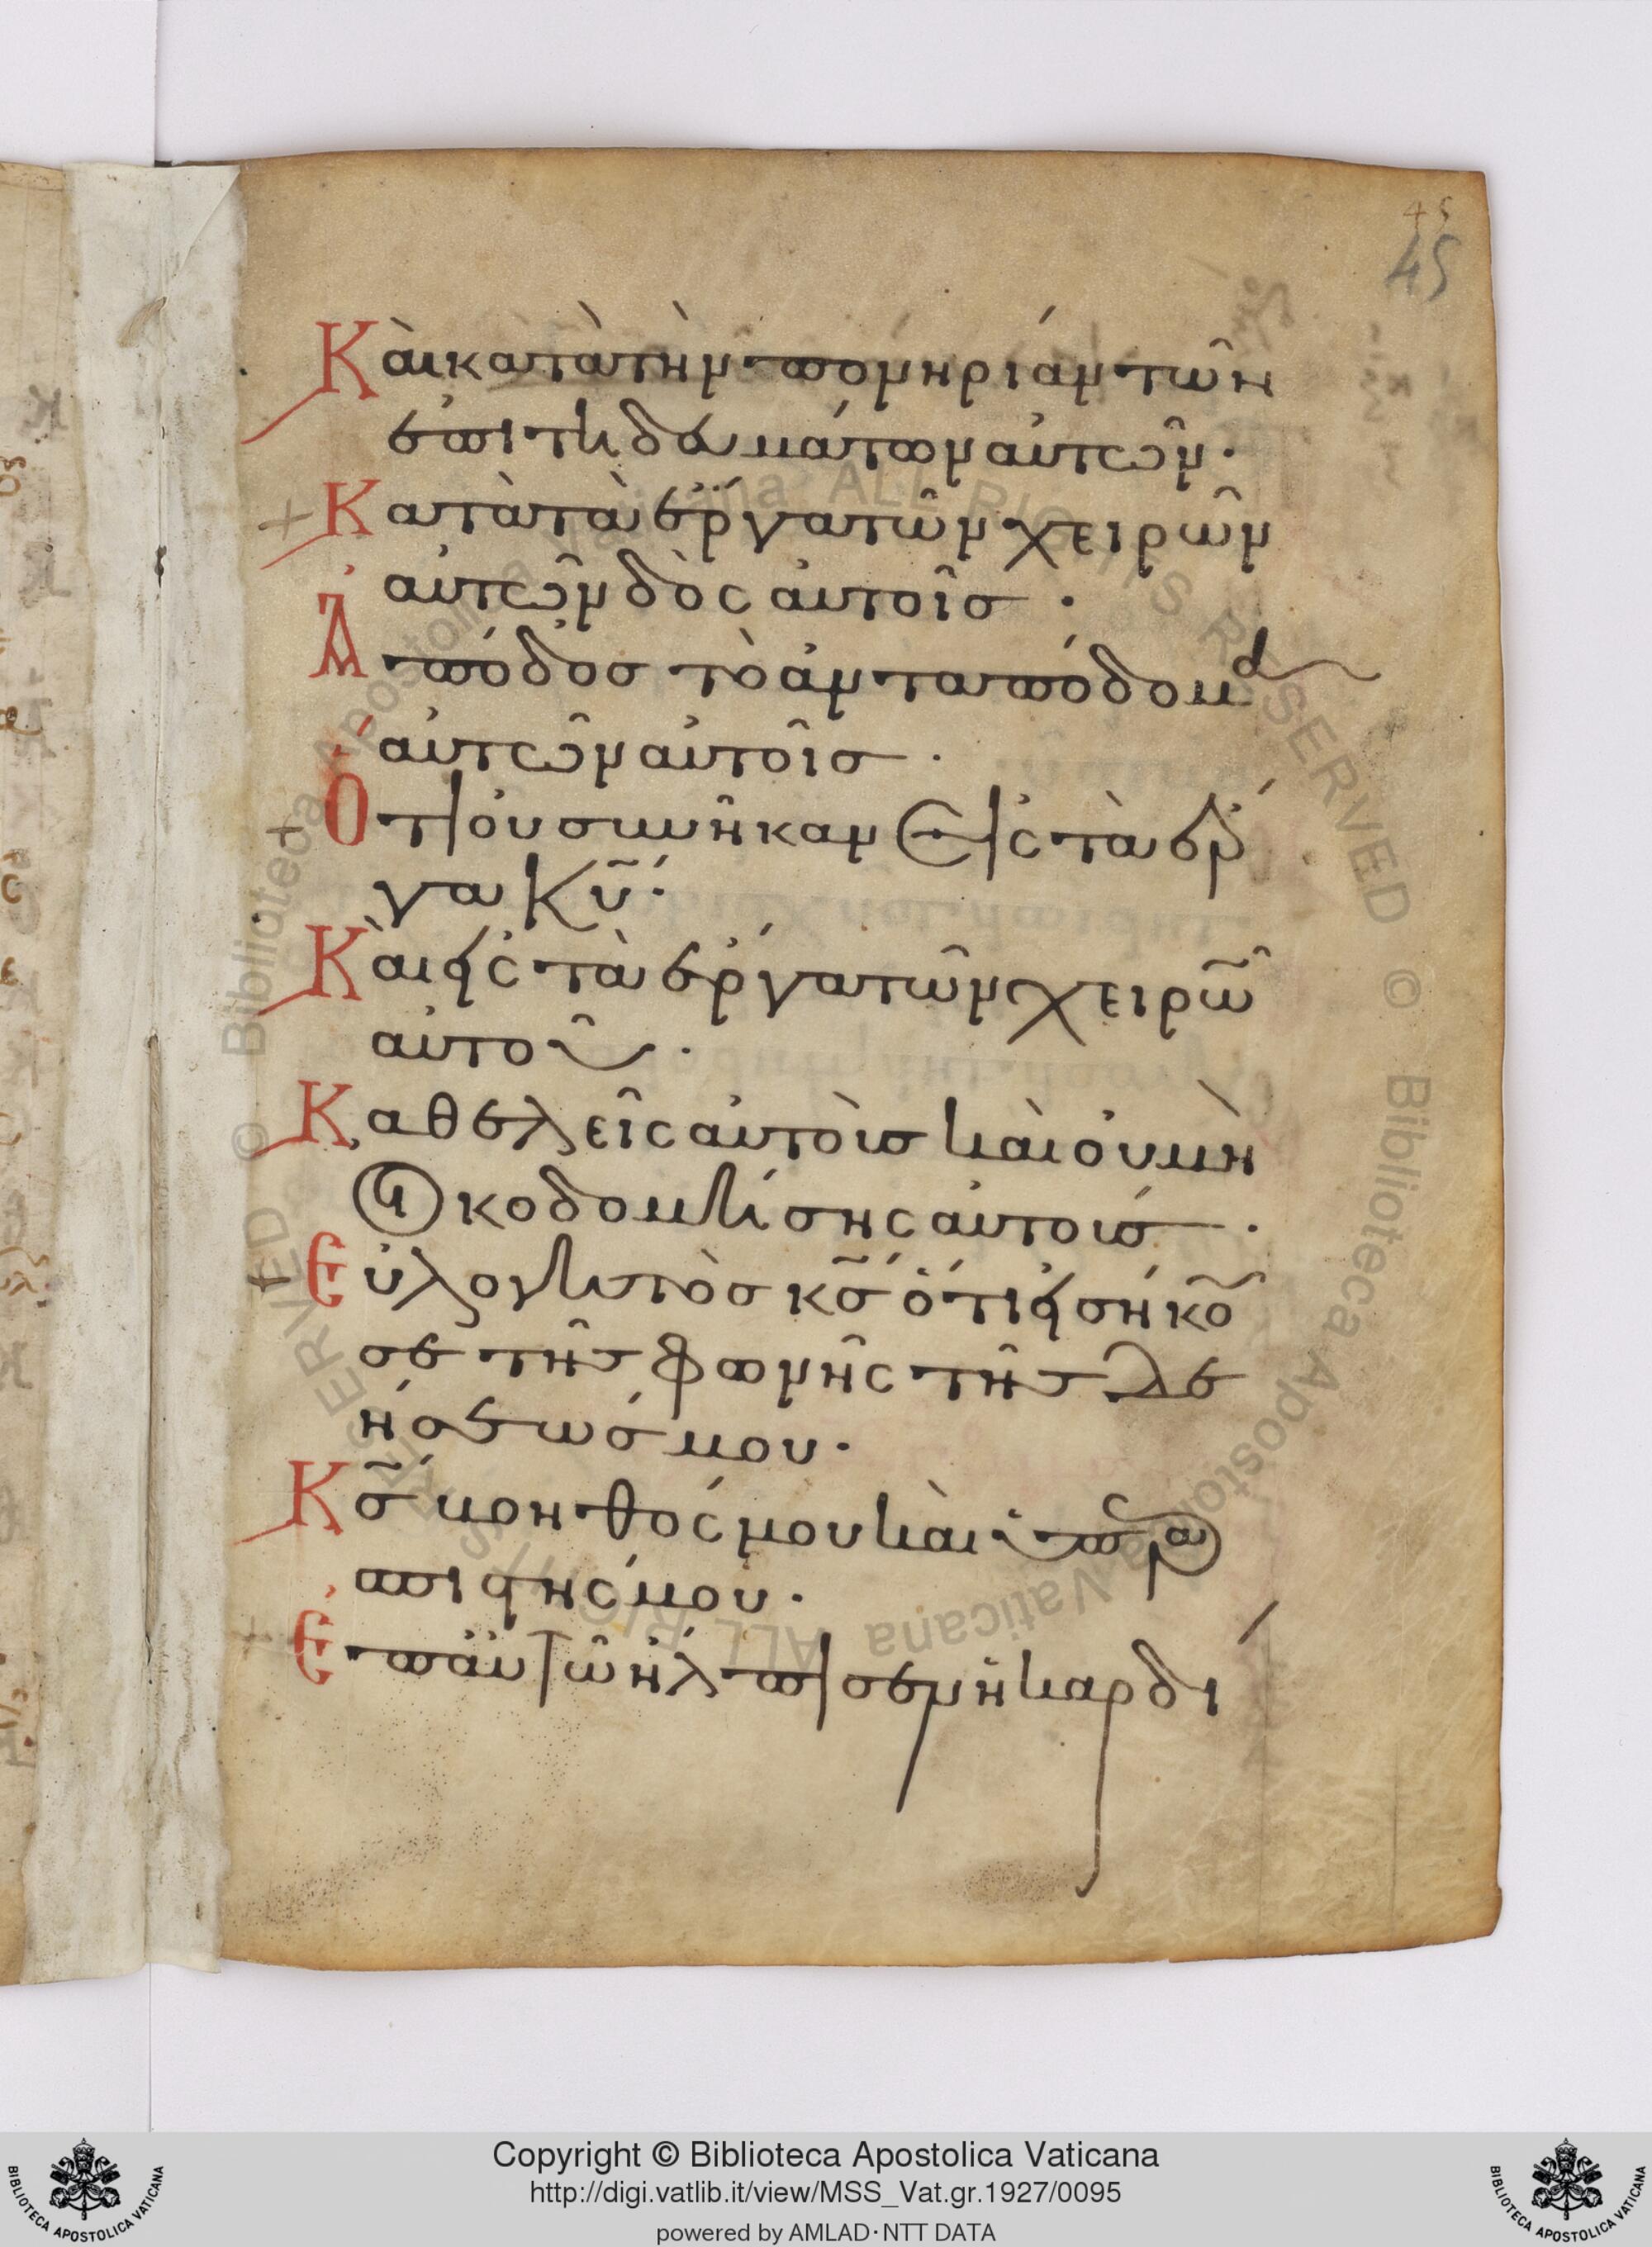 45
45
Καὶ κατὰ τὴν πονηρίαν τῶν
ἐπιτηδευμάτων αὐτῶν·
Κατὰ τὰ ἔργα τῶν χειρῶν
αὐτῶν δὸς αὐτοῖς·
Ἀπόδος τὸ ἀνταπόδομα
αὐτῶν αὐτοῖς·
Ὅτι οὐ συνῆκαν εἰς τὰ ἔρ
γα κυ̅·
Καὶ εἰς τὰ ἔργα τῶν χειρῶ̅
αὐτοῦ·
Καθελεῖς αὐτοὺς καὶ οὐ μὴ
οἰκοδομήσης αὐτούς·
Εὐλογητὸς κσ̅ ὅτι εἰσήκου
σε τῆς φωνῆς τῆς δε
ήσεώς μου·
Κσ̅ βοηθός μου καὶ ὑπερα
σπιστής μου·
Ἐπ' αὐτῶ ἤλπισεν ἡ καρδί
Copyright © Biblioteca Apostolica Vaticana
http://digi.vatlib.it/view/MSS_Vat.gr.1927/0095
powered by AMLAD·NTT DATA
BIBLIOTECA APOSTOLICA VATICANA
BIBLIOTECA APOSTOLICA VATICANA